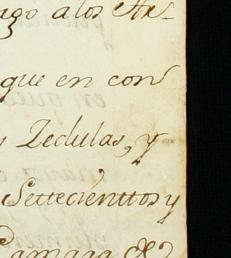 ago a los Ar-
que en con
Zedulas, y
Settecienttos y
Camara &